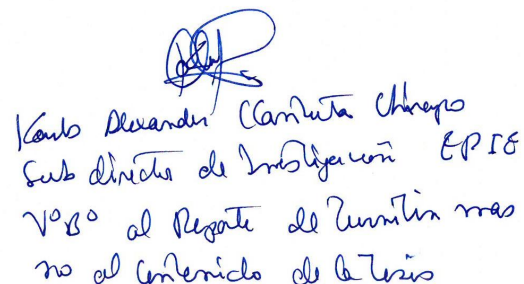 Alexander
Sub director de Investigación EPIE
V°B° al Reporte de Turnitin mas
no al contenido de la Tesis